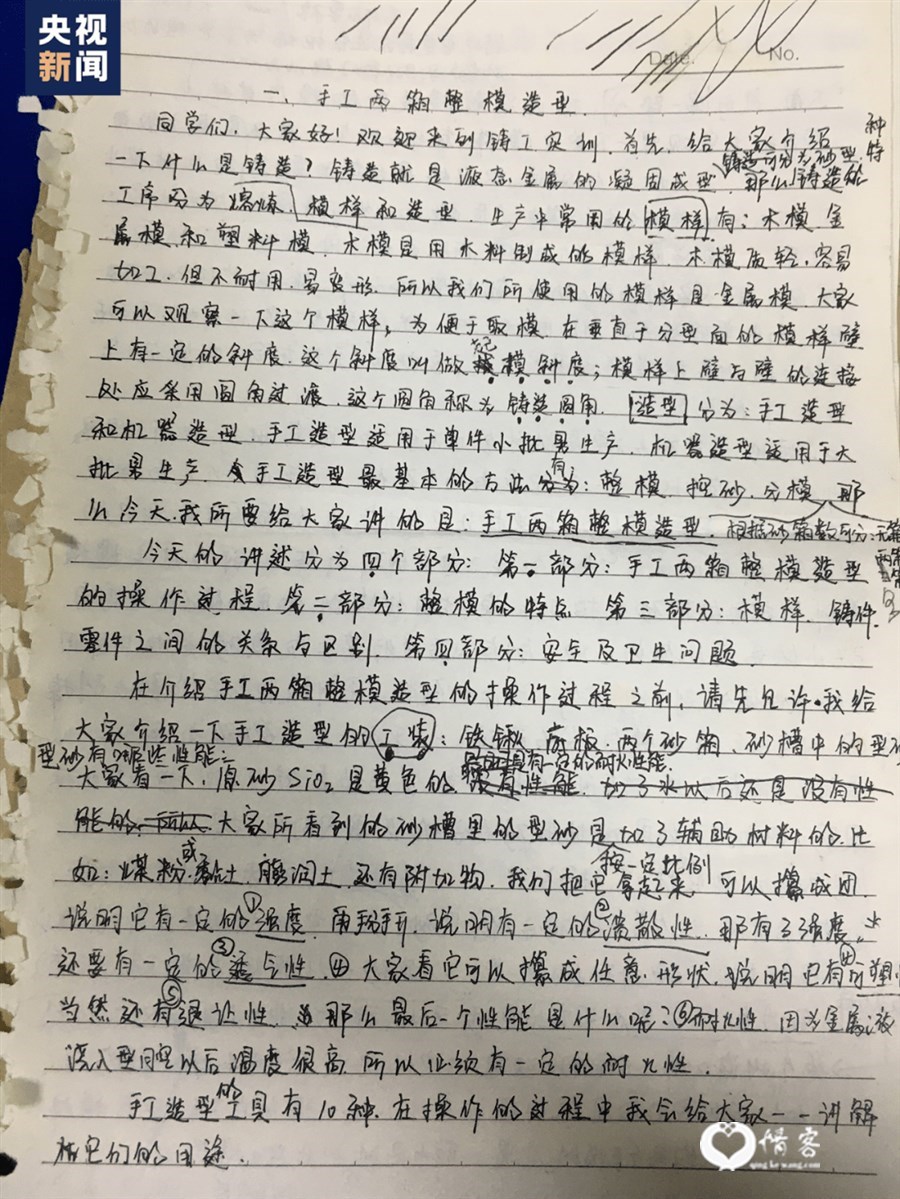 央视
新闻
Date. No.
一、手工两箱整模造型.
同学们，大家好！欢迎来到铸工实训，首先，给大家介绍
种
一下什么是铸造？铸造就是液态金属的凝固成型，那么铸造的
铸造可分为砂型、特
工序分为熔炼、模样和造型。生产中常用的模样有：木模、金
属模、和塑料模，木模是用木料制成的模样，木模质轻，容易
加工，但不耐用，易变形，所以我们所使用的模样是金属模，大家
可以观察一下这个模样，为便于取模，在垂直于分型面的模样壁
上有一定的斜度，这个斜度叫做起模斜度；模样上壁与壁的连接
处应采用圆角过渡，这个圆角称为铸造圆角。造型分为：手工造型
和机器造型，手工造型适用于单件小批量生产，机器造型适用于大
批量生产，手工造型最基本的方法有：整模、挖砂、分模，那
么今天，我所要给大家讲的是：手工两箱整模造型，根据砂箱数可分：
今天的讲述分为四个部分：第一部分：手工两箱整模造型
的操作过程，第二部分：整模的特点，第三部分：模样、铸件、
零件之间的关系与区别，第四部分：安全及卫生问题。
在介绍手工两箱整模造型的操作过程之前，请先允许我给
大家介绍一下手工造型的工装：铁锹、底板、两个砂箱、砂槽中的型砂
型砂有哪些性能：
具有一定的耐火性能.
大家看一下，原砂SiO₂是黄色的，没有性能，加了水以后还是没有性
能的，所以大家所看到的砂槽里的型砂是加了辅助材料的，比
如：煤粉或黏土、膨润土，还有附加物，按一定比例
我们把它拿起来，可以攥成团
说明它有一定的①强度，再掰开，说明有一定的②溃散性，那有了强度，
还要有一定的③透气性，④大家看它可以攥成任意形状，说明它有④可塑性
当然还有⑤退让性，那么最后一个性能是什么呢？⑥耐火性，因为金属液
浇入型腔以后温度很高，所以必须有一定的耐火性.
手工造型的工具有10种，在操作的过程中我会给大家一一讲解
它们的用途.
情客
qingkewang.com